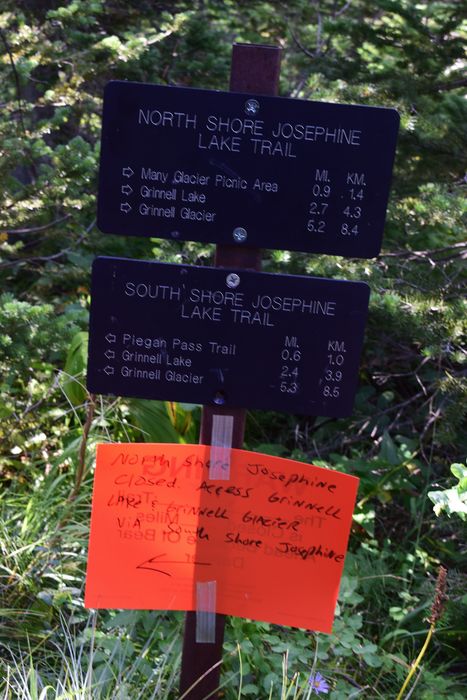 NORTH SHORE JOSEPHINE
LAKE TRAIL
MI. KM.
⇨ Many Glacier Picnic Area 0.9 1.4
⇨ Grinnell Lake 2.7 4.3
⇨ Grinnell Glacier 5.2 8.4
SOUTH SHORE JOSEPHINE
LAKE TRAIL
MI. KM.
⇦ Piegan Pass Trail 0.6 1.0
⇦ Grinnell Lake 2.4 3.9
⇦ Grinnell Glacier 5.3 8.5
NORTH Shore Josephine
CLOSED. Access Grinnell
LAKE & GRINNELL GLACIER
VIA South Shore Josephine
←